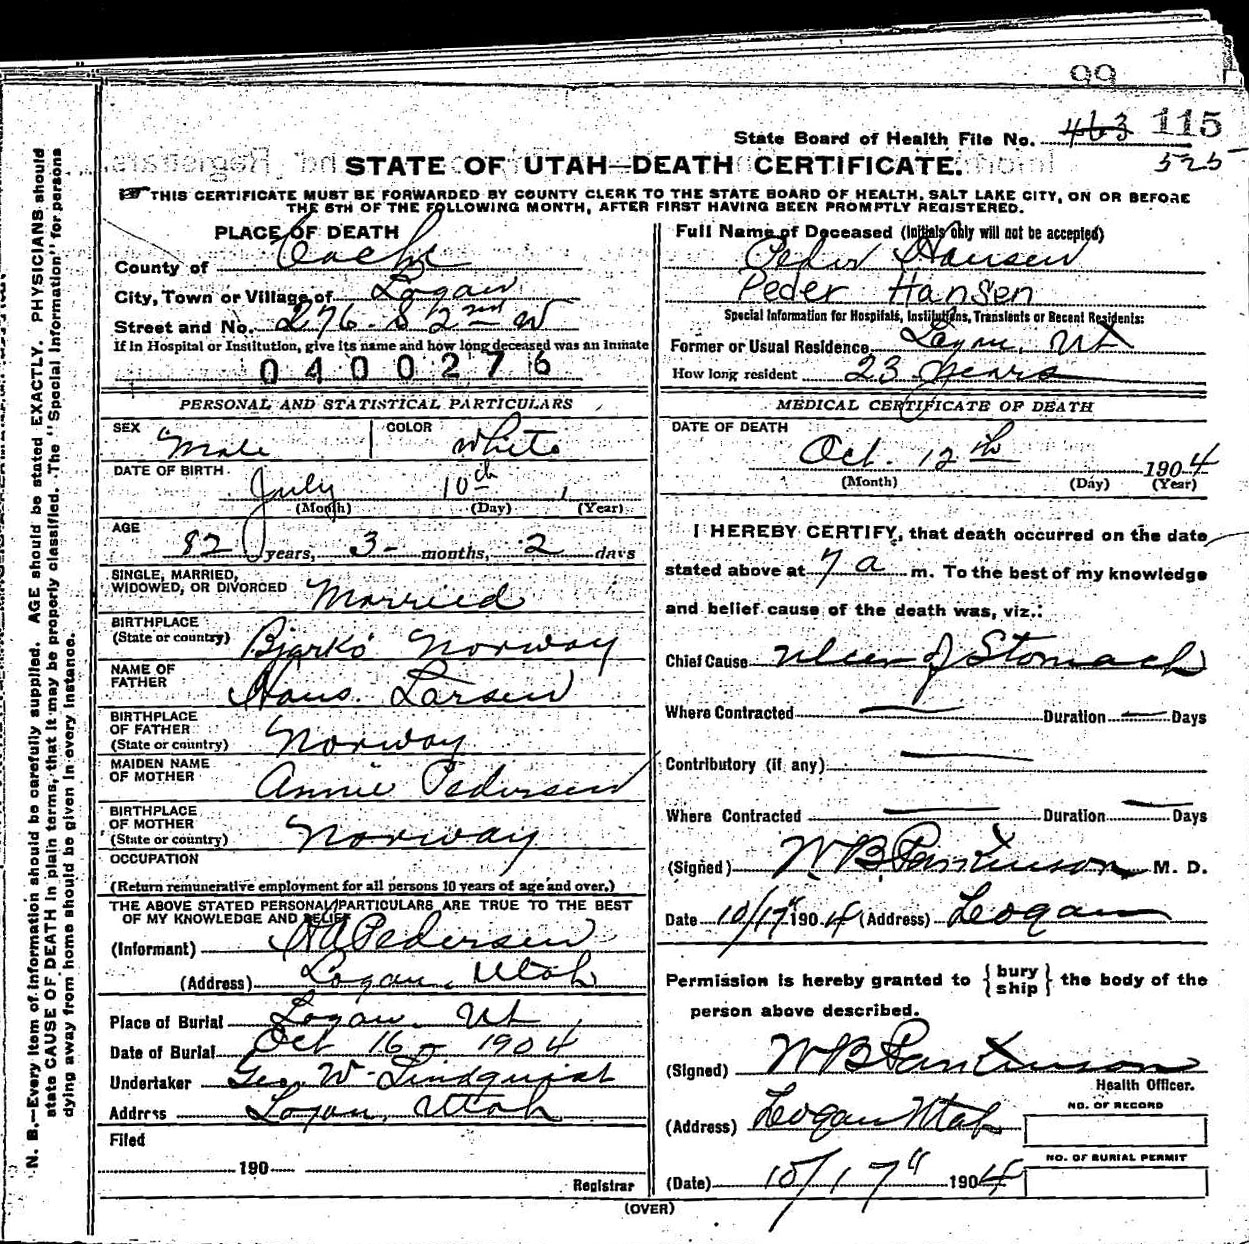 99
State Board of Health File No. 463 115
525
STATE OF UTAH—DEATH CERTIFICATE.
THIS CERTIFICATE MUST BE FORWARDED BY COUNTY CLERK TO THE STATE BOARD OF HEALTH, SALT LAKE CITY, ON OR BEFORE
THE 5TH OF THE FOLLOWING MONTH, AFTER FIRST HAVING BEEN PROMPTLY REGISTERED.
PLACE OF DEATH
County of Cache
City, Town or Village of Logan
Street and No. 276 S 2nd W
If in Hospital or Institution, give its name and how long deceased was an inmate
0400276
Full Name of Deceased (Initials only will not be accepted)
Peder Hansen
Peder Hansen
Special Information for Hospitals, Institutions, Transients or Recent Residents:
Former or Usual Residence Logan, Ut
How long resident 23 years
PERSONAL AND STATISTICAL PARTICULARS
SEX Male COLOR White
DATE OF BIRTH
July 10th ,
(Month) (Day) (Year)
AGE
82 years, 3 months, 2 days
SINGLE, MARRIED,
WIDOWED, OR DIVORCED Married
BIRTHPLACE
(State or country) Bjarko Norway
NAME OF
FATHER Hans. Larsen
BIRTHPLACE
OF FATHER
(State or country) Norway
MAIDEN NAME
OF MOTHER Annie Pedersen
BIRTHPLACE
OF MOTHER
(State or country) Norway
OCCUPATION
(Return remunerative employment for all persons 10 years of age and over.)
THE ABOVE STATED PERSONAL PARTICULARS ARE TRUE TO THE BEST
OF MY KNOWLEDGE AND BELIEF
(Informant) Pedersen
(Address) Logan, Utah
Place of Burial Logan, Ut
Date of Burial Oct 16 - 1904
Undertaker Geo. W. Lindquist
Address Logan, Utah
Filed
190
Registrar
MEDICAL CERTIFICATE OF DEATH
DATE OF DEATH
Oct. 12th 1904
(Month) (Day) (Year)
I HEREBY CERTIFY, that death occurred on the date
stated above at 7 a m. To the best of my knowledge
and belief cause of the death was, viz.:
Chief Cause Ulcer of Stomach
Where Contracted — Duration — Days
Contributory (if any) —
Where Contracted — Duration — Days
(Signed) W B Parkinson M. D.
Date 10/17" 1904 (Address) Logan
Permission is hereby granted to { bury ship } the body of the
person above described.
(Signed) W B Parkinson
Health Officer.
(Address) Logan Utah
NO. OF RECORD
NO. OF BURIAL PERMIT
(Date) 10/17" 1904
(OVER)
N. B.—Every item of information should be carefully supplied. AGE should be stated EXACTLY. PHYSICIANS should
state CAUSE OF DEATH in plain terms, that it may be properly classified. The "Special Information" for persons
dying away from home should be given in every instance.